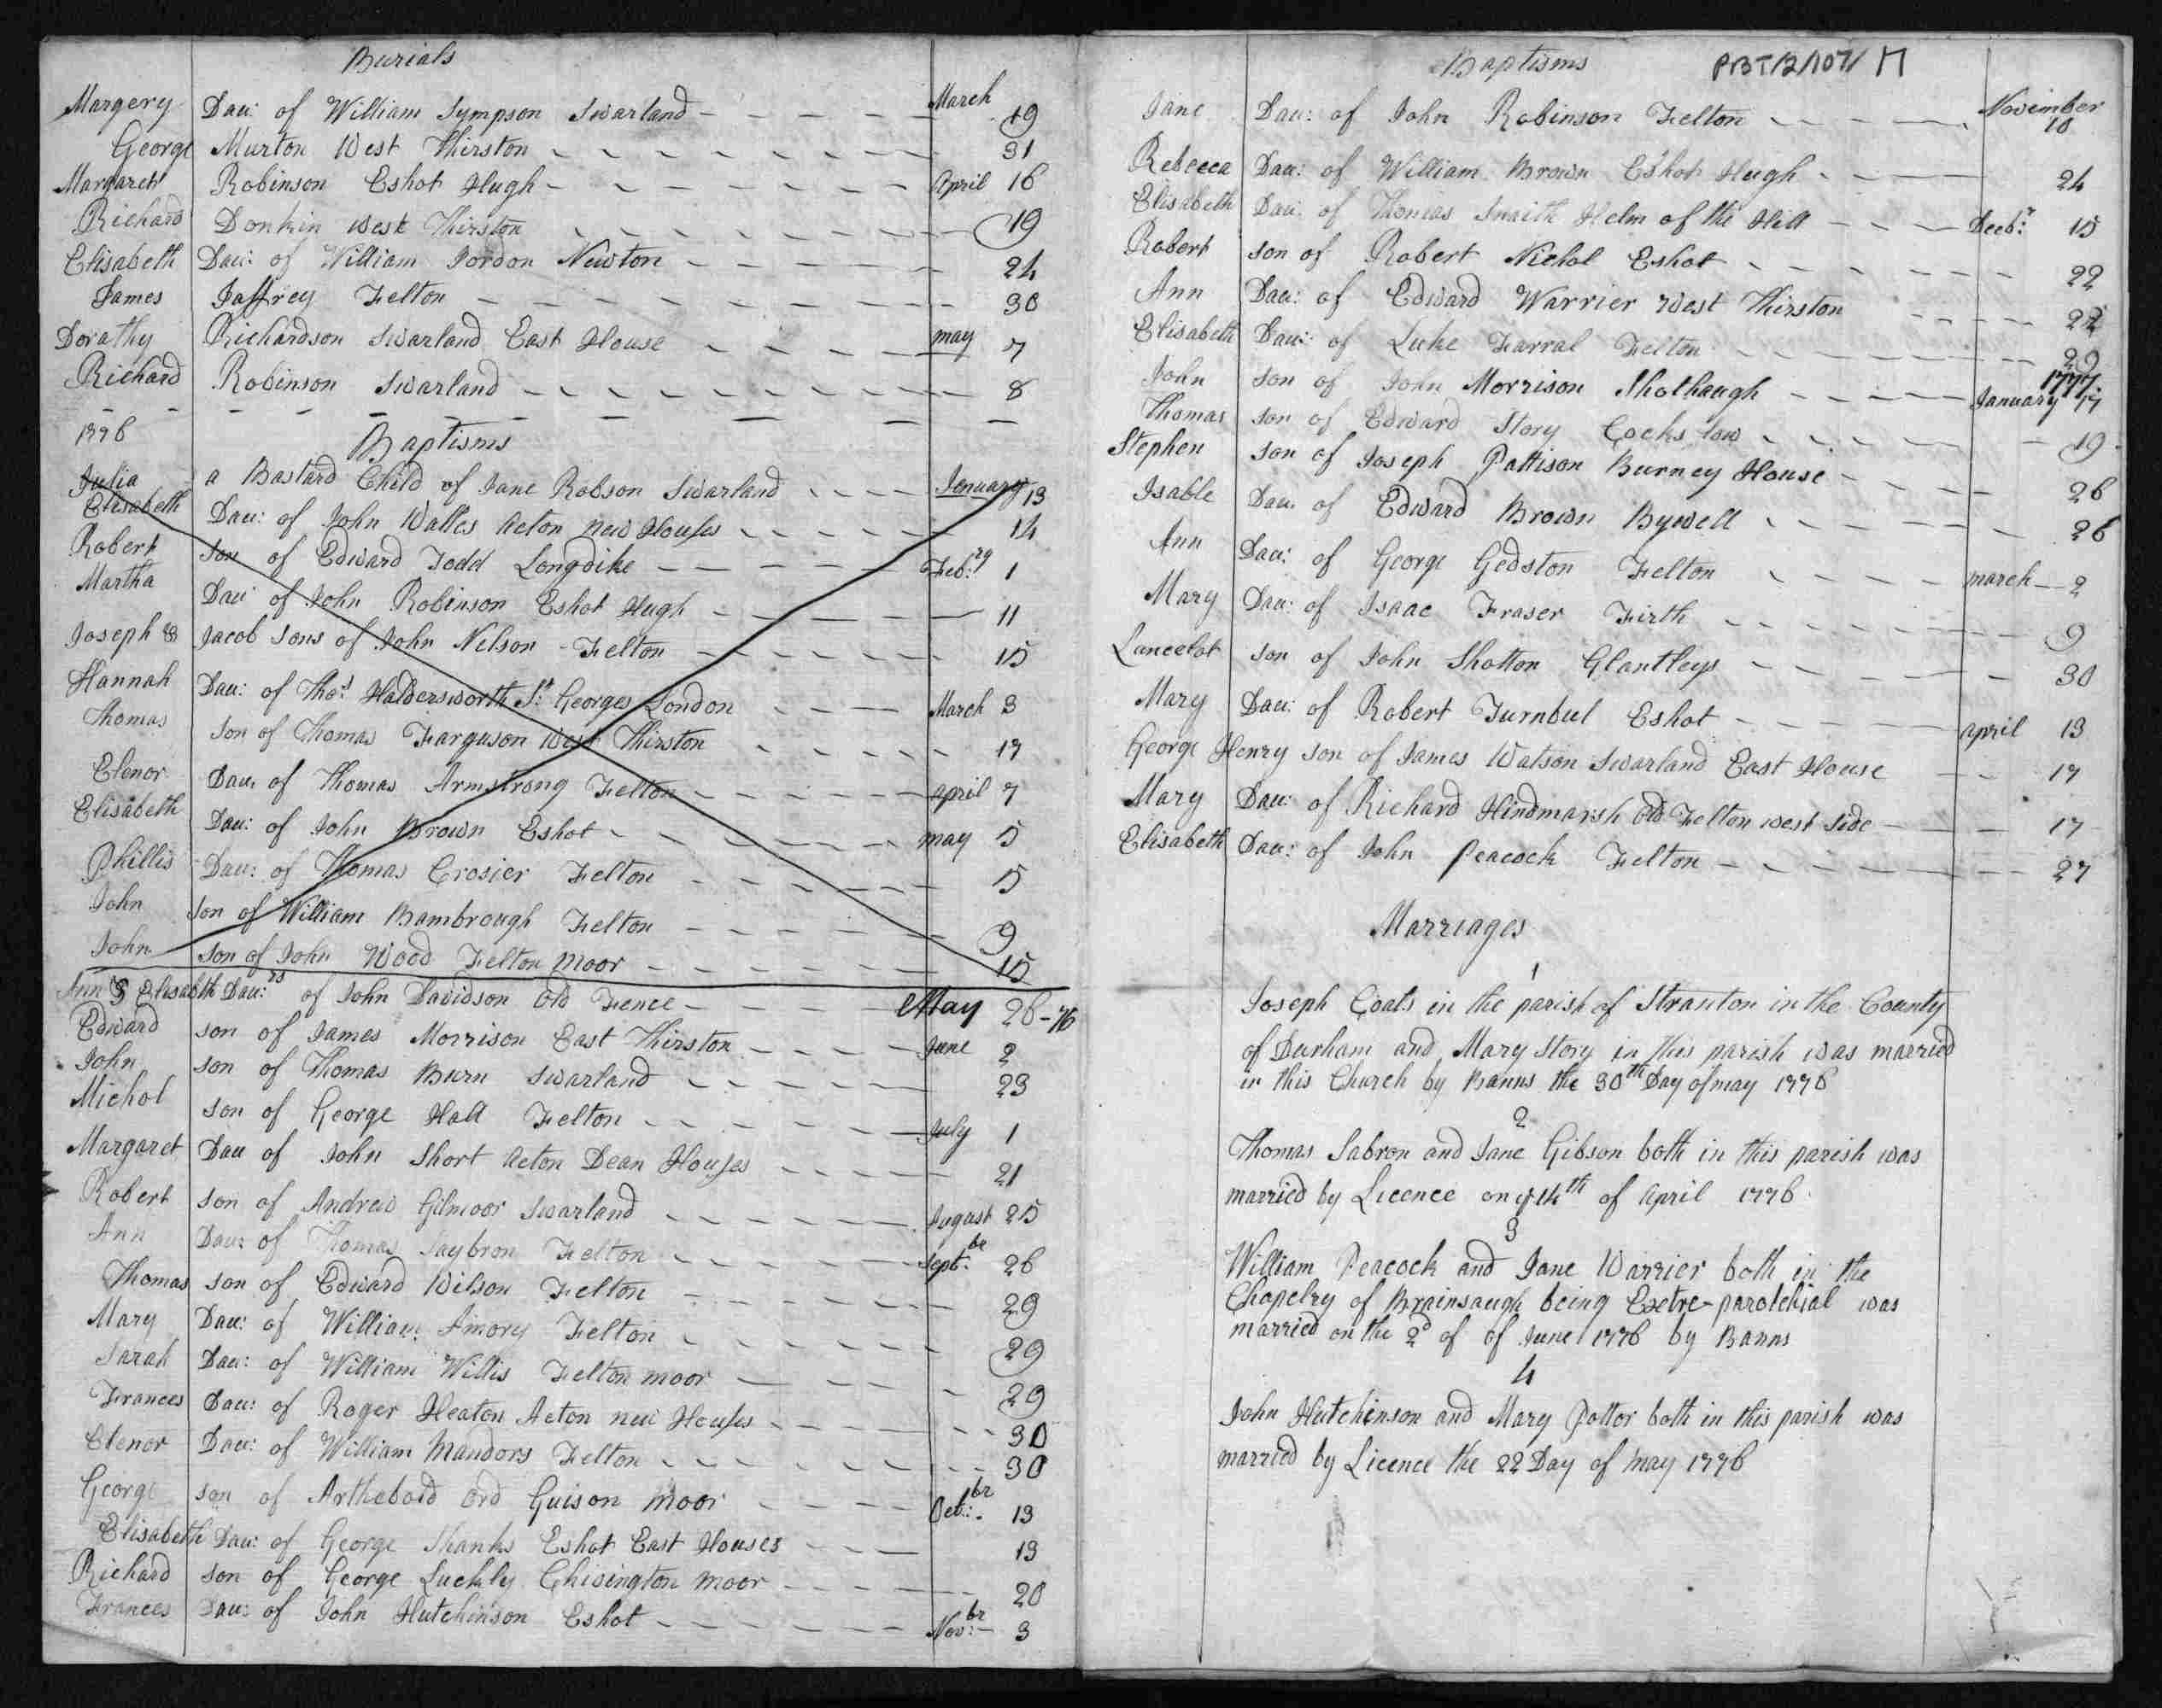 Burials
Margery Dau: of William Sympson Swarland March 19
George Murton West Thirston 31
Margaret Robinson Eshot Hugh April 16
Richard Donkin West Thirston 19
Elisabeth Dau: of William Jordon Newton 24
James Jaffrey Felton 30
Dorathy Richardson Swarland East House may 7
Richard Robinson Swarland 8
1776 Baptisms
Julia a Bastard Child of Jane Robson Swarland January 13
Elisabeth Dau: of John Walles Acton new Houses 14
Robert son of Edward Todd Longdike Feb:ry 1
Martha Dau: of John Robinson Eshot Hugh 11
Joseph & Jacob sons of John Nelson Felton 15
Hannah Dau: of Thos: Haldersworth St: Georges London March 3
Thomas son of Thomas Farguson West Thirston 17
Elenor Dau. of Thomas Armstrong Felton april 7
Elisabeth Dau: of John Brown Eshot may 5
Phillis Dau: of Thomas Crosier Felton 5
John son of William Bambrough Felton 9
John son of John Wood Felton moor 15
Ann & Elisabth Dau:rs of John Davidson Old Fence May 26-76
Edward son of James Morrison East Thirston June 2
John son of Thomas Burn Swarland 23
Michol son of George Hall Felton July 1
Margaret Dau of John Short Acton Dean Houses 21
Robert son of Andrew Gilmoor Swarland August 25
Ann Dau: of Thomas Saybron Felton Sept:br 26
Thomas son of Edward Wilson Felton 29
Mary Dau: of William Amory Felton 29
Sarah Dau: of William Willis Felton moor 29
Frances Dau: of Roger Heaton Acton new Houses 30
Elenor Dau: of William Mandors Felton 30
George son of Arthebold Ord Guison Moor Oct:br 13
Elisabeth Dau: of George Shanks Eshot East Houses 13
Richard son of George Luckly Chisington moor 20
Frances Dau: of John Hutchinson Eshot Nov:br 3
Baptisms PBT/2/107/17
Jane Dau: of John Robinson Felton November 10
Rebecca Dau: of William Brown Eshot Hugh 24
Elisabeth Dau: of Thomas Snaith Helm of the Hill Decb:r 15
Robert son of Robert Nichol Eshot 22
Ann Dau: of Edward Warrier West Thirston 22
Elisabeth Dau: of Luke Farral Felton 29
1777.
John son of John Morrison Shothaugh January 17
Thomas son of Edward Story Cocks law 19
Stephen son of Joseph Pattison Burney House 26
Isable Dau. of Edward Brown Bywell 26
Ann Dau: of George Gedston Felton march 2
Mary Dau: of Isaac Fraser Firth 9
Lancelot son of John Shotton Glantleys 30
Mary Dau: of Robert Turnbul Eshot april 13
George Henry son of James Watson Swarland East House 17
Mary Dau: of Richard Hindmarsh Old Felton west side 17
Elisabeth Dau: of John Peacock Felton 27
Marriages
1
Joseph Coats in the parish of Stranton in the County
of Durham and Mary Story in this parish was married
in this Church by Banns the 30th Day of may 1776
2
Thomas Sabron and Jane Gibson both in this parish was
married by Licence on ye 14th of april 1776
3
William Peacock and Jane Warrier both in the
Chapelry of Brainsaugh being Extre-parolchial was
married on the 2d of of June 1776 by Banns
4
John Hutchinson and Mary Pottor both in this parish was
married by Licence the 22 Day of may 1776